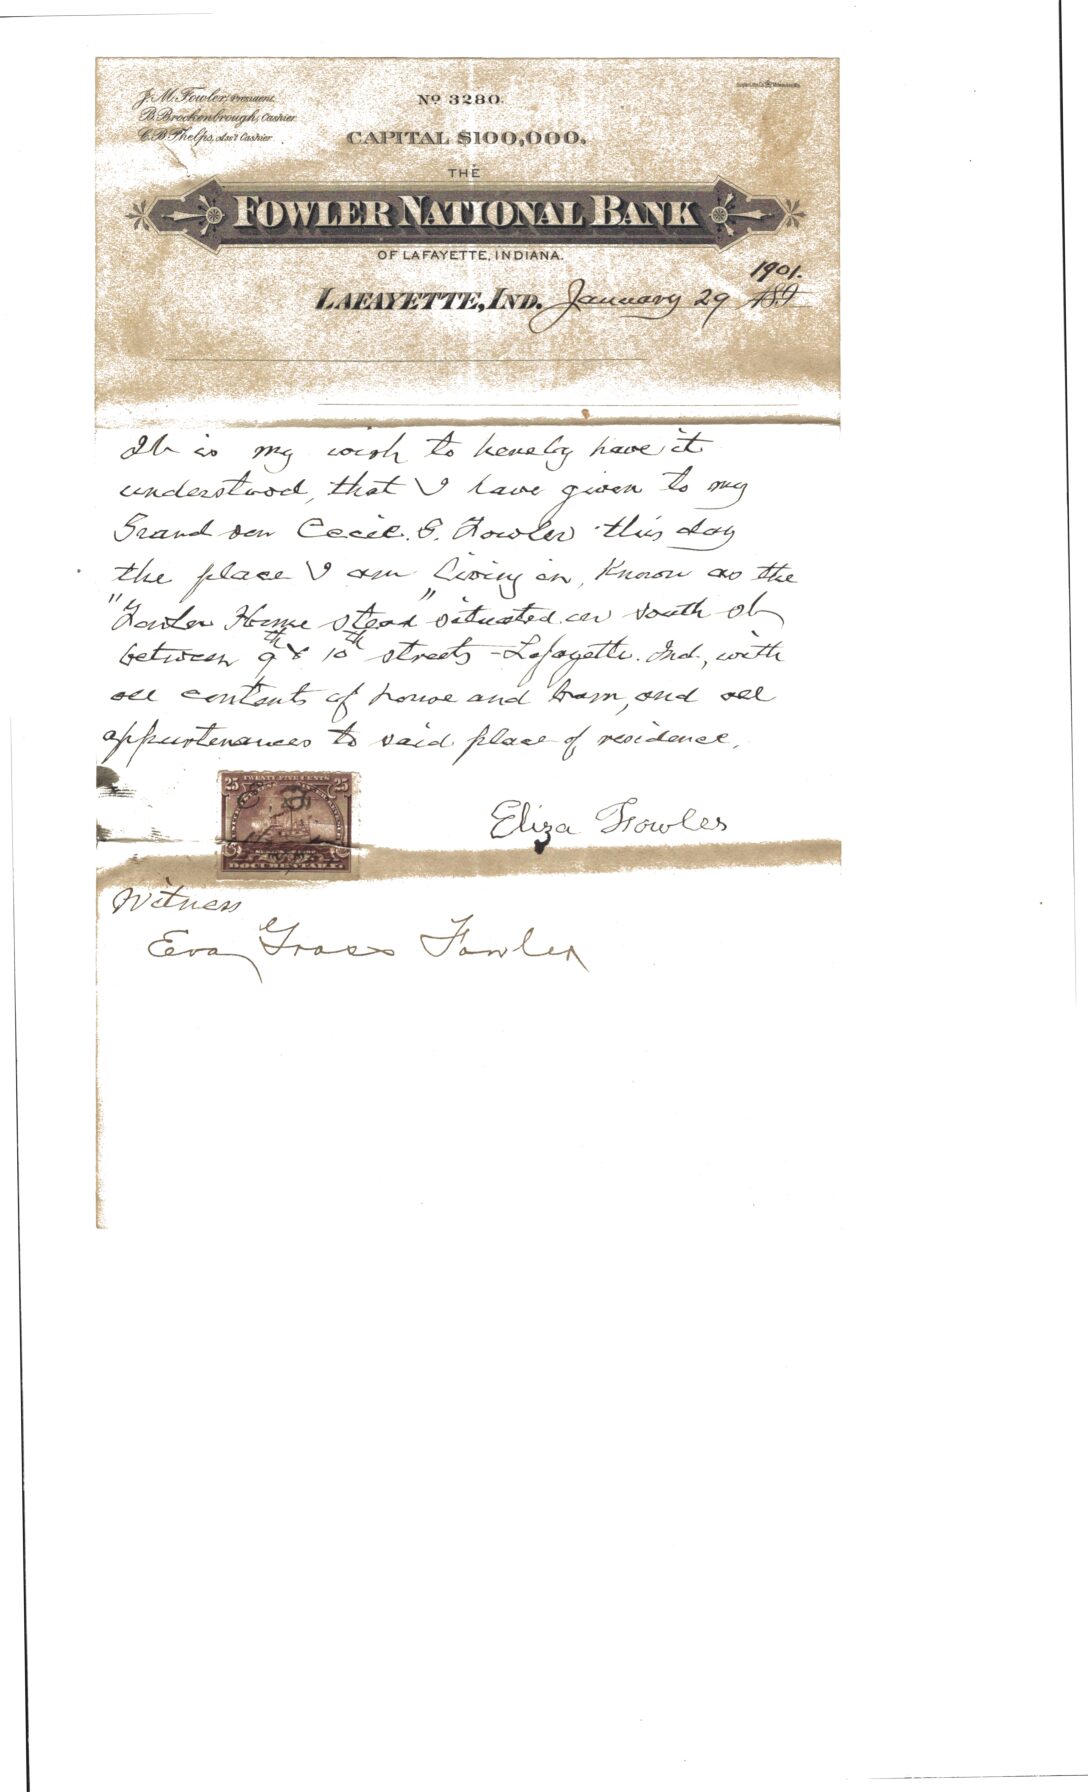 J. M. Fowler, President.
B. Brockenbrough, Cashier.
C. B. Phelps, Ass't Cashier.
No 3280.
CAPITAL $100,000.
THE
FOWLER NATIONAL BANK
OF LAFAYETTE, INDIANA.
1901.
LAFAYETTE, IND. January 29 189
It is my wish to hereby have it
understood, that I have given to my
Grand son Cecil. G. Fowler this day
the place I am living in, Known as the
"Fowler Home stead" situated on South st
between 9th & 10th streets - Lafayette. Ind., with
all contents of house and barn, and all
appurtenances to said place of residence.
25 TWENTY FIVE CENTS 25
DOCUMENTARY
Eliza Fowler
Witness
Eva Grace Fowler